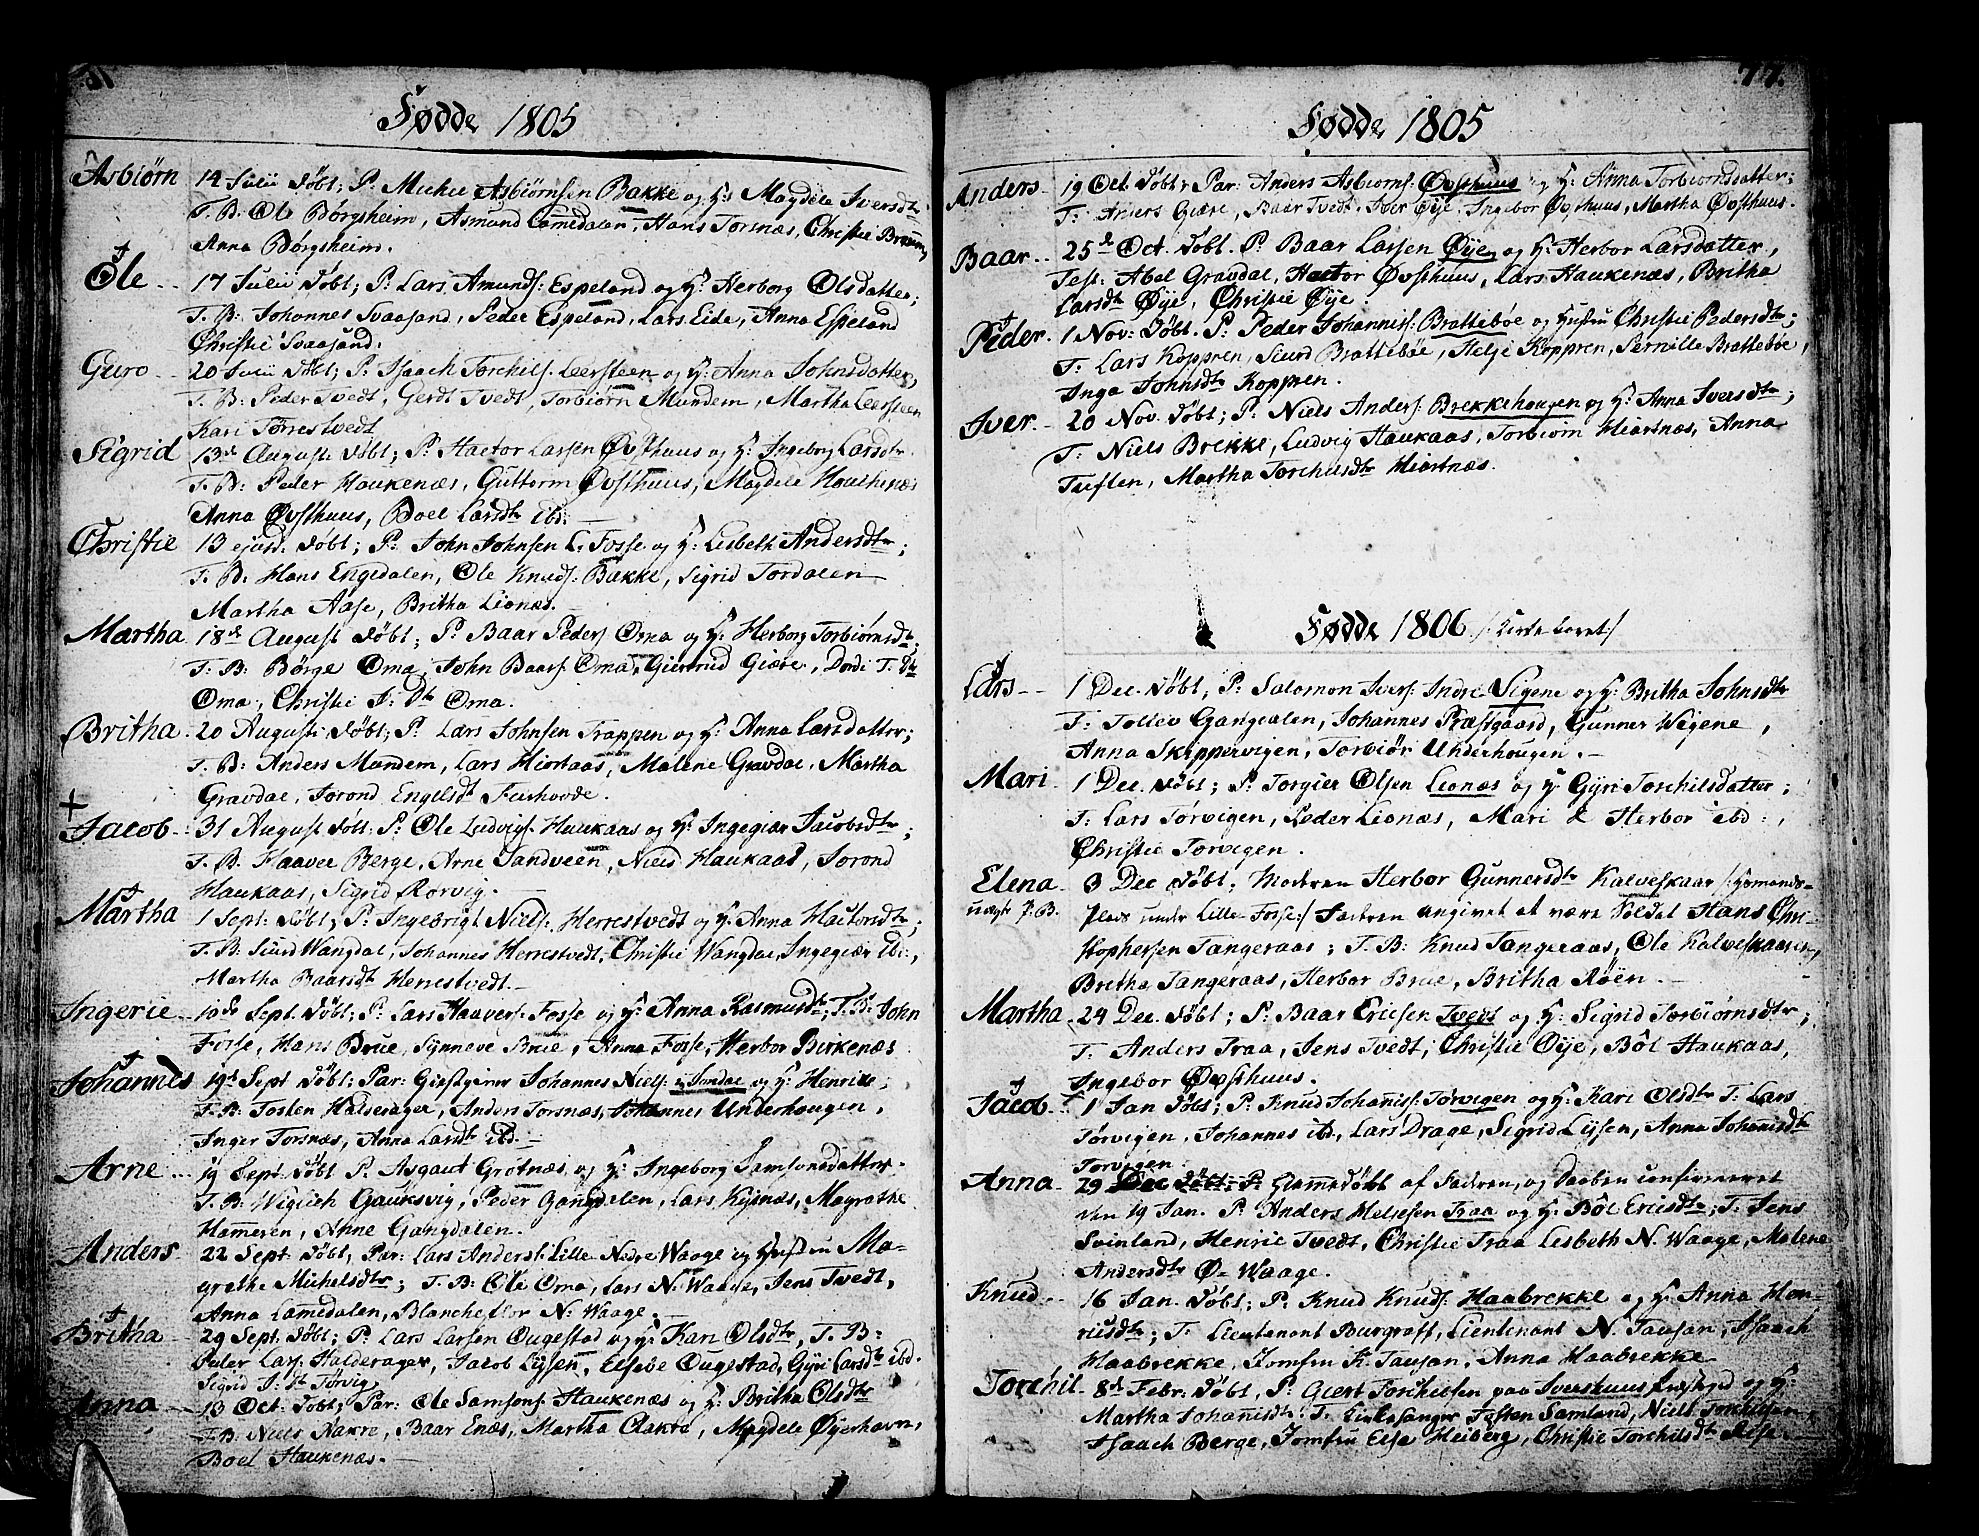 Fødde 1805
Asbiørn 14 Julii døbt; P: Michel Asbiørnsen Bakke og H: Magdele Iversdtr
T. B. Ole Børgsheim, Asmund Lamedalen, Hans Torsnæs, Christie
Anna Børgsheim.
Ole 17 Julii døbt; P: Lars Amunds: Espeland og H: Herborg Olsdatter;
T. B: Johannes Svaasand, Peder Espeland, Lars Eide, Anna Espeland
Christie Svaasand.
Guro 20 Julii døbt; P: Isaach Torchils: Leersteen og H: Anna Johnsdatter,
T. B: Peder Tvedt, Gerdt Tvedt, Torbiørn Mundem, Martha Leersteen
Kari Tørrestvedt
Sigrid 13de Augusti døbt; P: Hactor Larssen Øvsthuus og H: Ingeborg Larsdtr
T. B: Peder Haukenæs, Guttorm Øvsthuus, Magdele Haukenæs
Anna Øvsthuus, Boel Larsdtr ibd:
Christie 13 ejusd. døbt; P: John Johnsen L: Fosse og H: Lisbeth Andersdtr;
T. B: Hans Engedalen, Ole Knuds: Bakke, Sigrid Tordalen
Martha Aase, Britha Lionæs.
Martha 18de August døbt; P: Baar Peders Oma og H: Herborg Torbiørnsdtr,
T. B: Børge Oma, John Baars: Oma, Giertrud Giære, Dordi T. Dtr
Oma, Christie J: Dtr Oma.
Britha 20 Augusti døbt; P: Lars Johnsen Trappen og H: Anna Larsdatter;
T. B: Anders Mundem, Lars Hiortaas, Malene Gravdal, Martha
Gravdal, Jorond Engelsdtr
+
Jacob 31 August døbt: P: Ole Ludvigs: Haukaas og H: Ingegiær Jacobsdtr;
T. B. Haaver Berge, Arne Sandveen, Niels Haukaas, Jorond
Haukaas, Sigrid Rørvig.
Martha 1 Sept: døbt; P: Ingebrigt Niels: Herrestvedt og H: Anna Hactorsdtr;
T. B: Siurd Wangdal, Johannes Herrestvedt, Christie Wangdal, Ingegiær ibd:,
Martha Baarsdtr Herrestvedt.
Ingerie 10de Sept. døbt; P: Lars Haavers: Fosse og H: Anna Rasmusdtr; T. B: John
Fosse, Hans Brue, Synneve Brue, Anna Fosse, Herbor Birkenæs
Johannes 19de Sept døbt; Par: Giestgiver Johannes Niels: i Sundal og H: Henrikke;
T. B: Tosten Halderager, Anders Torsnæs, Johannes Underhougen,
Inger Torsnæs, Anna Larsdtr ibd.
Arne 19 Sept: døbt P. Asgaut Grotnæs og H: Ingeborg Samsonsdatter.
T. B: Wiglich Gauksvig, Peder Gangdalen, Lars Kysnæs, Magrethe
Hammeren, Ahne Gangdalen.
Anders 22 Sept døbt; Par: Lars Anders: Lille Nedre Waage og Hustru Ma-
grethe Michelsdtr; T. B: Ole Oma, Lars N: Waage, Jens Tvedt,
Anna Lamedalen, Blancheflor N: Waage.
Britha 29 Sept: døbt; P: Lars Larsen Ougestad og H: Kari Olsdtr, T. B:
Peder Lars: Halderager, Jacob Lyssen, Elsebe Ougestad, Gyri Larsdtr ibd.
Sigrid J: Dt Tørvig
Anna 13 Oct: døbt; Par: Ole Samsons: Haukenæs og H: Britha Olsdtr
T. B: Niels Aakre, Baar Enæs, Martha Aakre, Magdele Øyerhavn,
Boel Haukenæs.
77.
Fødde 1805
Anders 19 Oct. døbt; Par: Anders Asbiørns: Øvsthuus og H: Anna Torbiørnsdatter;
T: Anders Giære, Baar Tvedt, Iver Øye, Ingebor Øvsthuus, Martha Øvsthuus.
Baar 25de Oct. døbt. P: Baar Larssen Øye og H: Herbor Larsdatter,
Test: Abel Gravdal, Hactor Øvsthuus, Lars Haukenæs, Britha
Larsdtr Øye, Christie Øye.
Peder 1 Nov: døbt. P: Peder Johannis: Brattebøe og Hustru Christie Pedersdtr;
T. Lars Koppren, Siurd Brattebøe, Helje Koppren, Pernille Brattebøe,
Inga Johnsdtr Koppren.
Iver 20 Nov. døbt; P: Niels Anders: Brekkehougen og H: Anna Iversdtr;
T: Niels Brekke, Ludvig Haukaas, Torbiørn Hiortnæs, Anna
Tuften, Martha Torchilsdtr Hiortnæs.
Fødde 1806 /: Kirke Aaret:/
Lars 1 Dec. døbt, P: Salomon Ivers: Indre Vigene og H: Britha Johnsdtr
T: Tollev Gangdalen, Johannes Præstgaard, Gunner Wigene,
Anna Skippervigen, Torbiør Underhougen.
Mari 1 Dec. døbt; P: Torgier Olsen Lionæs og H: Gyri Torchilsdatter;
T: Lars Tørvigen, Peder Lionæs, Mari & Herbor ibd:,
Christie Tørvigen.
Elena 3 Dec døbt, Moderen Herbor Gunnersdtr Kalveskaar /: Huusmands-
uægte P. B. Plads under Lille Fosse:/ Faderen angivet at være Soldat Hans Chri-
stophersen Tangeraas; T. B: Knud Tangeraas, Ole Kalveskaaren,
Britha Tangeraas, Herbor Brue, Britha Røen.
Martha 24 Dec. døbt; P: Baar Ericsen Tvedt og H: Sigrid Torbiørnsdtr;
T. Anders Traa, Jens Tvedt, Christie Øye, Bôl Haukaas,
Ingebor Øvsthuus.
Jacob 1 Jan døbt; P: Knud Johanis: Tørvigen og H: Kari Olsdtr T: Lars
Tørvigen, Johannes ibd, Lars Drage, Sigrid Lyssen, Anna Johanisdtr
Tørvigen
Anna 29 Dec døbt; P: Hiemmedøbt af Faderen, og Daaben confirmeret
den 19 Jan. P: Anders Helgesen Traa og H: Bôl Ericsdtr; T: Jens
Svinland, Henric Tvedt, Christie Traa Lisbeth N. Waage, Malene
Andersdtr Ø- Waage.
Knud 16 Jan. døbt; P: Knud Knuds: Haabrekke og H: Anna Hen-
ricsdtr; T: Lieutenant Burgraff, Lieutenant N. Tausan, Isaach
Haabrekke, Jomfru K: Tausan, Anna Haabrekke
Torchil 8de Febr: døbt, P: Giert Torchilsen paa Ivershuus og H:
Martha Johanisdtr: T: Kirkesanger Tosten Samland, Niels Torchilsen
Isaach Berge, Jomfru Else Heiberg, Christie Torchilsdtr